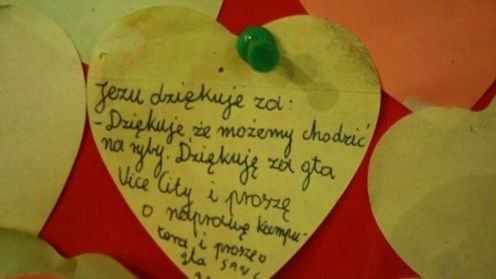 Jezu dziękuje za:
- Dziękuje że możemy chodzić
na ryby. Dziękuję za gta
Vice City i proszę
o naprawę kompu-
tera, i prosze o
gta san